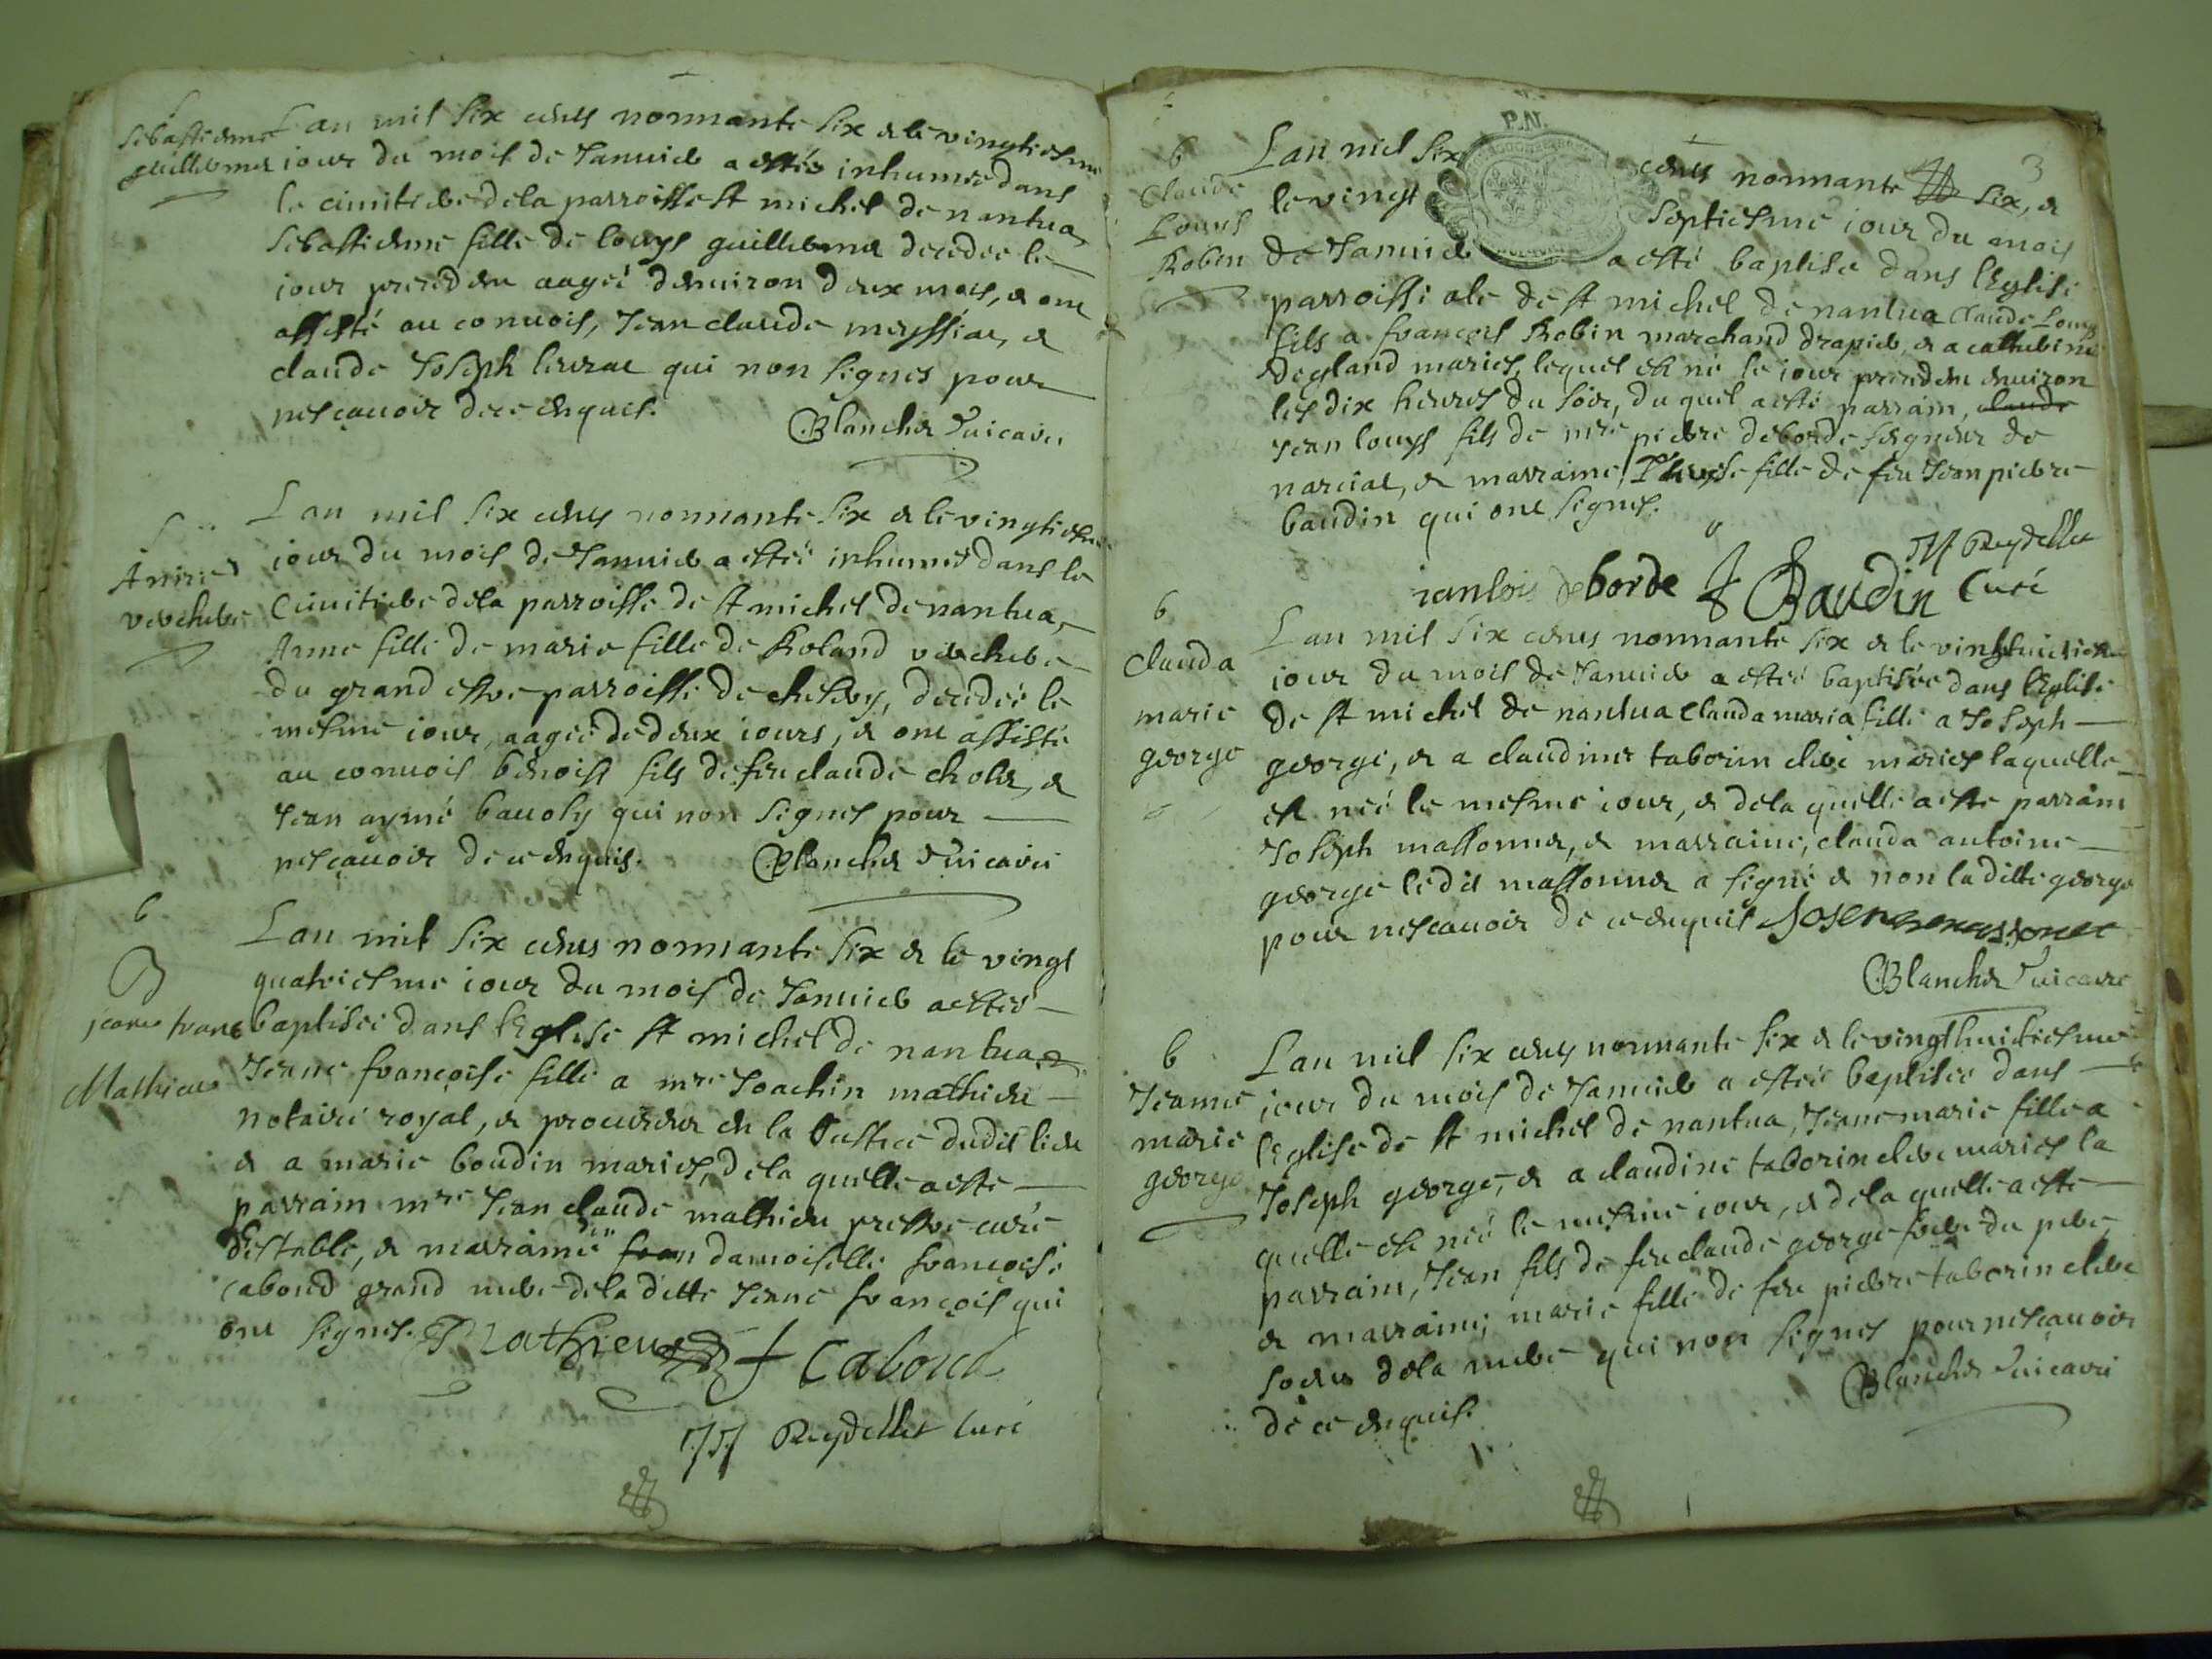 Sebastienne
guillermet
Lan mil six cents nonnante six & le vingtiesme
iour du mois de Januier a estée inhumée dans
le cimitiere de la parroisse st michel de nantua
Sebastienne fille de louys guillermet decedee le
iour precedent aagée denuiron deux mois, & ont
assisté au conuois, Jean claude meyssiat, &
claude Joseph leurat qui non signes pour
nescauoir de ce enquis.
Blanchet Vicaire
Anne
verchere
Lan mil six cents nonnante six & le vingtiesme
iour du mois de Januier a estée inhumée dans le
Cimitiere de la parroisse de st michel de nantua,
Anne fille de marie fille de Roland verchere
du grand parroisse de chesery, decedée le
mesme iour, aagée de deux iours, & ont assisté
au conuois benoist fils de feu claude cholet, &
Jean aymé qui non signes pour
nescauoir de ce enquis.
Blanchet Vicaire
b
jeane franc
Mathieu
Lan mil six cents nonnante six & le vingt
quatriesme iour du mois de Januier a estée
baptisée dans lEglise st michel de nantua
Jeane francoise fille a mre Joachin mathieu
notaire royal, & procureur en la Justice dudit lieu
& a marie boudin maries, de la quelle a esté
parrain mre Jean claude mathieu prestre curé
destable, & marraine damoiselle francoise
caboud grand mere de la ditte Jeane francois qui
ont signes. Mathieu f Caboud
JJ Reydellet curé
3
P.N.
b
Claude
Louys
Robin
Lan mil six cents nonnante six, &
le vingt septiesme iour du mois
de Januier a esté baptise dans lEglise
parroissiale de st michel de nantua Claude Louys
fils a francois Robin marchand drapier, & a catherine
degland maries, lequel est né le iour precedent enuiron
les dix heures du soir, du quel a esté parrain, claude
Jean louys fils de mre pierre deborde seigneur de
narciat, & marraine, fille de feu Jean pierre
baudin qui ont signes.
JJ Reydellet
ianlois deborde J Baudin Curé
b
Clauda
marie
george
Lan mil six cents nonnante six & le vinghuitiesme
iour du mois de Januier a estée baptisée dans lEglise
de st michel de nantua Clauda maria fille a Joseph
george, & a claudine taborin elere maries laquelle
est née le mesme iour, & de la quelle a esté parrain
Joseph massonnet, & marraine, clauda antoine
george le dit massonnet a signé & non la ditte george
pour nescauoir de ce enquis
Blanchet Vicaire
b
Jeanne
marie
george
Lan mil six cents nonnante six & le vingthuitiesme
iour du mois de Januier a estée baptisée dans
lEglise de st michel de nantua, Jeane marie fille a
Joseph george, & a claudine taborin elere maries la
quelle est née le mesme iour, & de la quelle a esté
parrain, Jean fils de feu claude george frere du pere
& marraine, marie fille de feu pierre taborin elere
soeur de la mere qui non signes pour nescauoir
de ce enquis.
Blanchet Vicaire